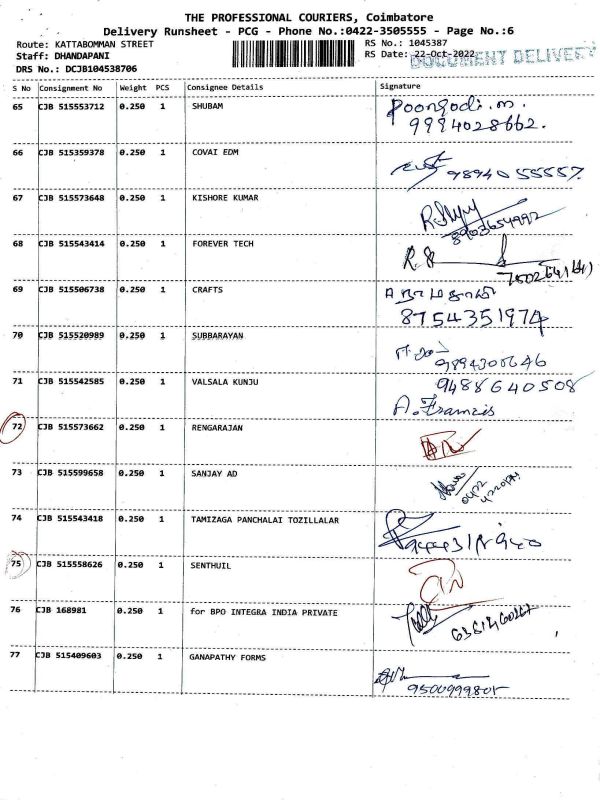 THE PROFESSIONAL COURIERS, Coimbatore
Delivery Runsheet - PCG - Phone No.:0422-3505555 - Page No.:6
Route: KATTABOMMAN STREET
RS No.: 1045387
Staff: DHANDAPANI
RS Date: 22-Oct-2022
DOCUMENT DELIVERY
DRS No.: DCJB104538706
S No Consignment No Weight PCS Consignee Details Signature
65 CJB 515553712 0.250 1 SHUBAM Poongodi.m.
9994028662.
66 CJB 515359378 0.250 1 COVAI EDM 9894055557.
67 CJB 515573648 0.250 1 KISHORE KUMAR
8903654992
68 CJB 515543414 0.250 1 FOREVER TECH R.S
69 CJB 515506738 0.250 1 CRAFTS
8754351974
70 CJB 515520989 0.250 1 SUBBARAYAN
9894306646
71 CJB 515542585 0.250 1 VALSALA KUNJU 9488640508
A. Francis
72 CJB 515573662 0.250 1 RENGARAJAN
73 CJB 515599658 0.250 1 SANJAY AD
0422
74 CJB 515543418 0.250 1 TAMIZAGA PANCHALAI TOZILLALAR
75 CJB 515558626 0.250 1 SENTHUIL
76 CJB 168981 0.250 1 for BPO INTEGRA INDIA PRIVATE
77 CJB 515409603 0.250 1 GANAPATHY FORMS